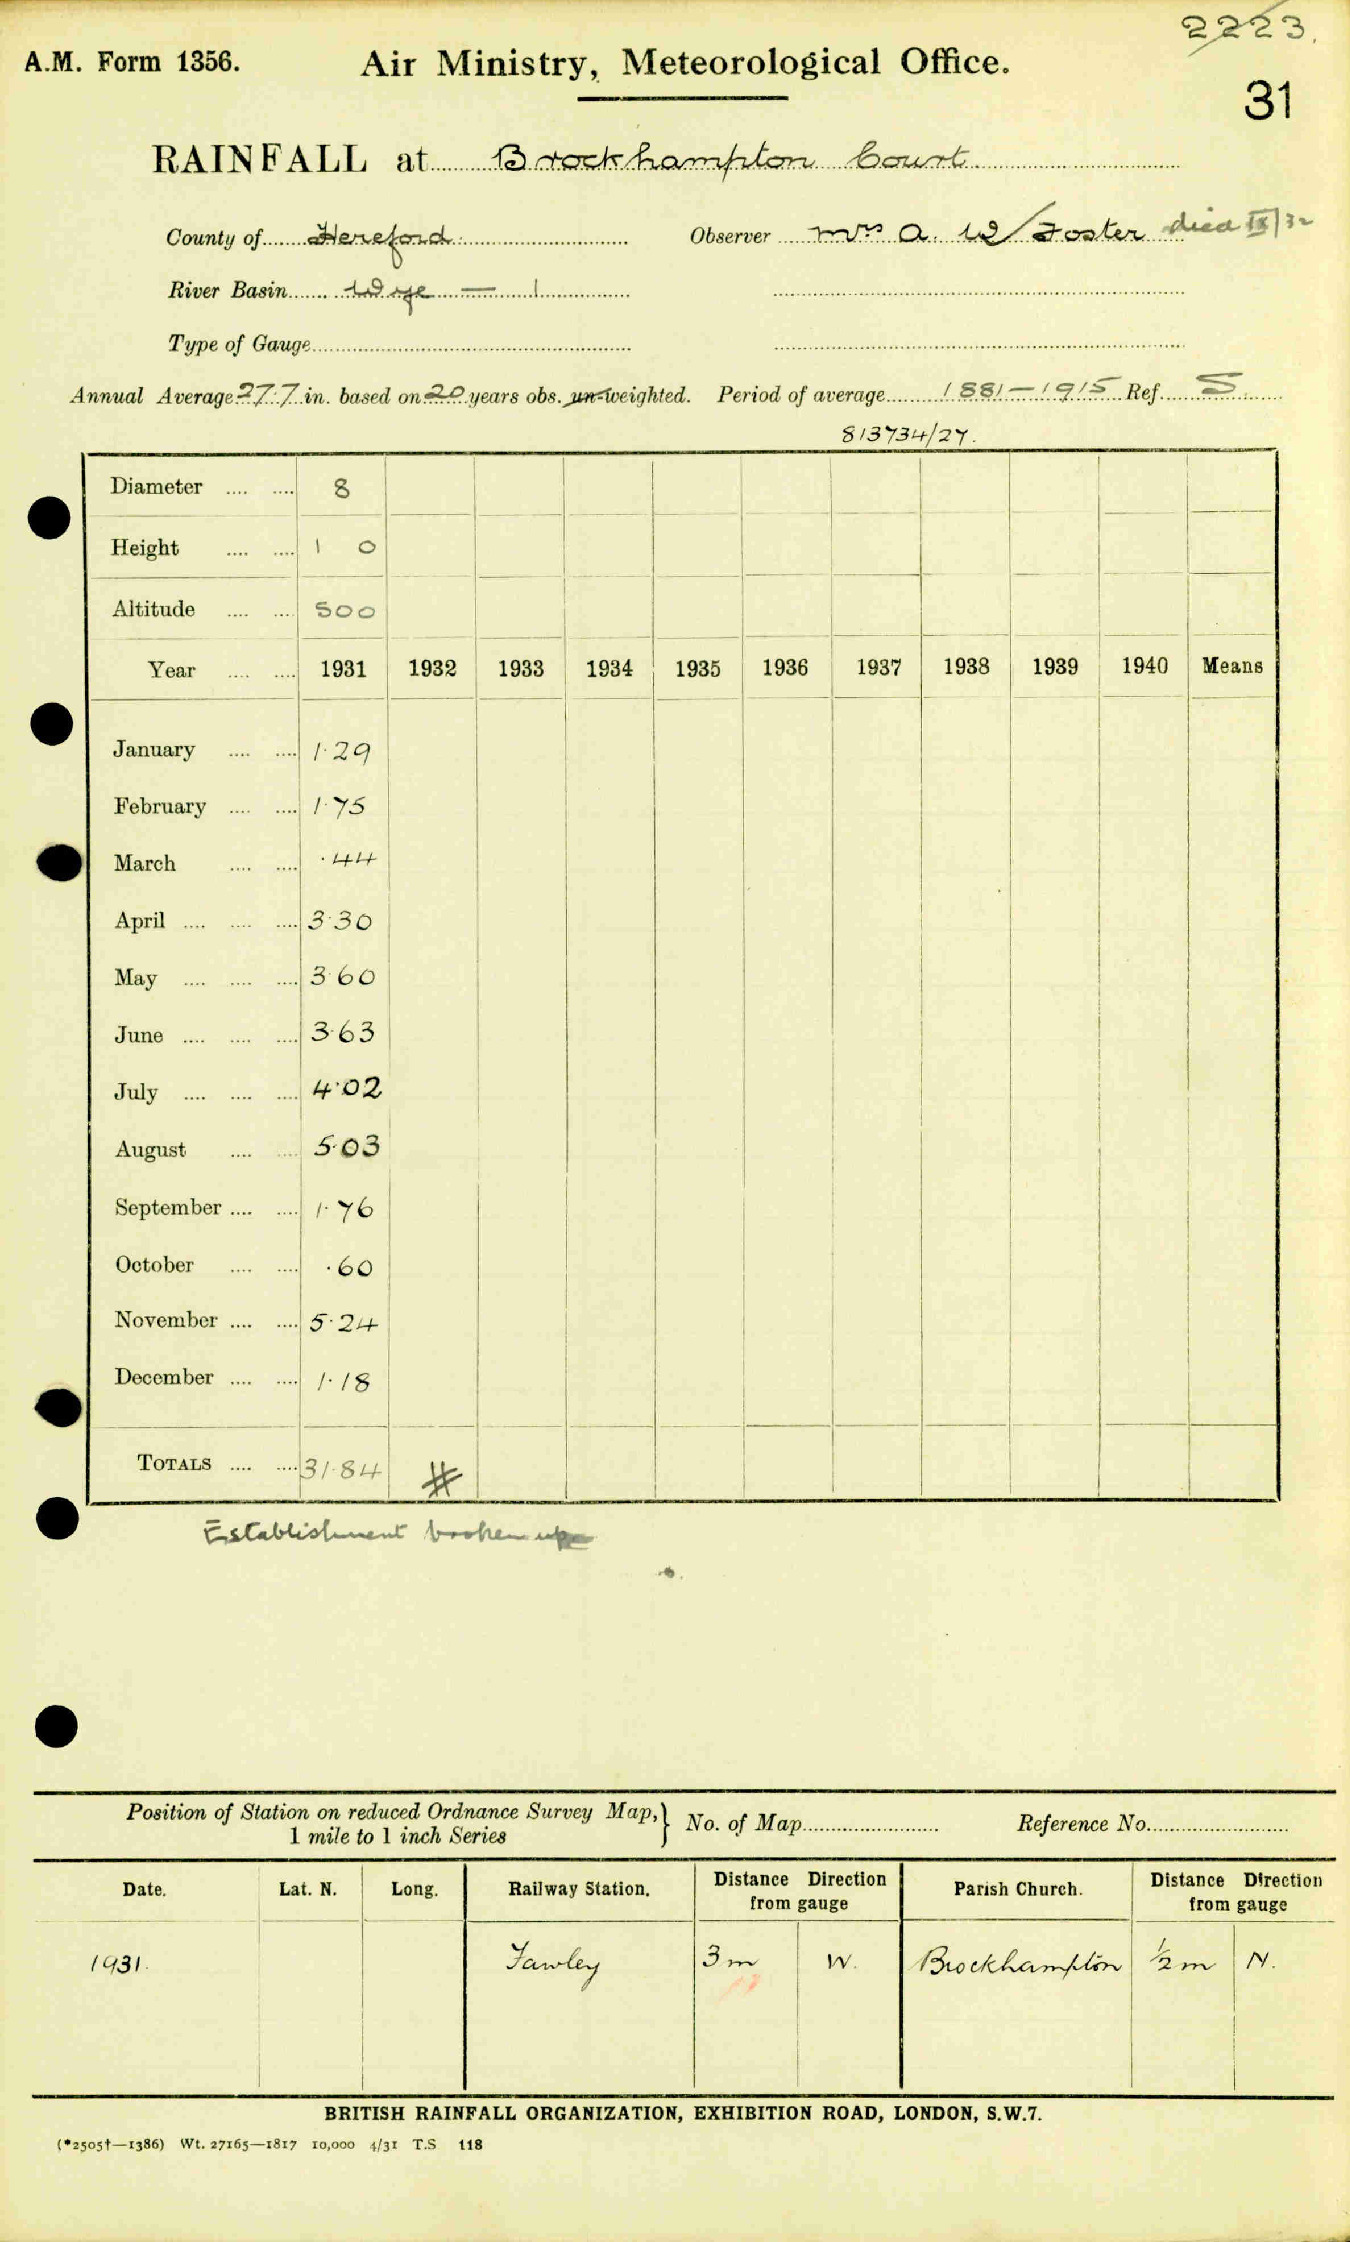 2223.
A.M. Form 1356. Air Ministry, Meteorological Office.
31
RAINFALL at Brockhampton Court
County of Hereford. Observer Mrs A. W. Foster died IX/32
River Basin Wye — 1
Type of Gauge
Annual Average 27.7 in. based on 20 years obs. un-weighted. Period of average 1881-1915 Ref. S
813734/27.
Diameter .... .... 8
Height .... .... 1 0
Altitude .... .... 500
Year .... .... 1931 1932 1933 1934 1935 1936 1937 1938 1939 1940 Means
January .... .... 1.29
February .... .... 1.75
March .... .... .44
April .... .... .... 3.30
May .... .... .... 3.60
June .... .... .... 3.63
July .... .... .... 4.02
August .... .... 5.03
September .... .... 1.76
October .... .... .60
November .... .... 5.24
December .... .... 1.18
TOTALS .... .... 31.84 #
Establishment broken up
Position of Station on reduced Ordnance Survey Map,} No. of Map Reference No.
1 mile to 1 inch Series
Date. Lat. N. Long. Railway Station. Distance Direction from gauge Parish Church. Distance Direction from gauge
1931. Fawley 3m W. Brockhampton ½ m N.
BRITISH RAINFALL ORGANIZATION, EXHIBITION ROAD, LONDON, S.W.7.
(*2505†—1386) Wt. 27165—1817 10,000 4/31 T.S 118